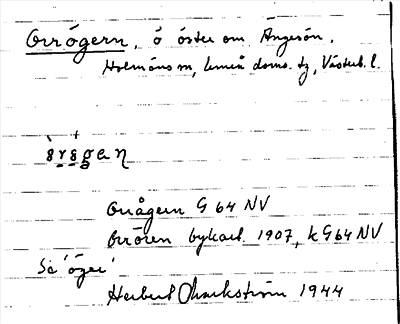 Orrögern, ö öster om Ängesön,
Holmöns sn, Umeå doms. tg, Västerb. l.
Orrågern G 64 NV
Orrören bykart. 1907, k G 64 NV
Se 'öger'
Herbert Markström 1944